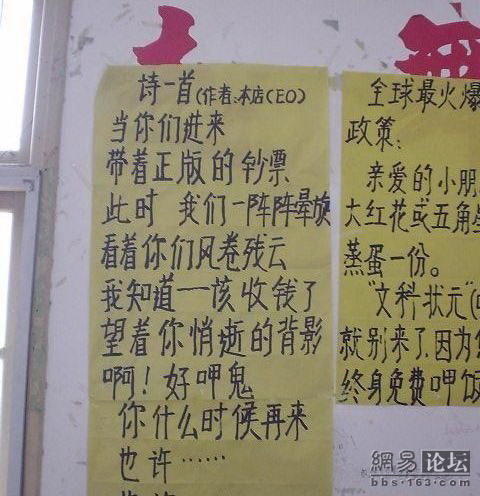 诗一首(作者:本店CEO)
当你们进来
带着正版的钞票
此时 我们一阵阵晕旋
看着你们风卷残云
我知道一该收钱了
望着你悄逝的背影
啊!好呷鬼
你什么时候再来
也许……
全球最火爆
政策:
亲爱的小朋
大红花或五角星
蒸蛋一份。
"文科状元"(
就别来了,因为
终身免费呷饭
網易 论坛
bbs.163.com